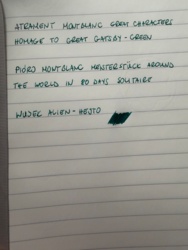 ATRAMENT MONTBLANC GREAT CHARACTERS
HOMAGE TO GREAT GATSBY - GREEN
PIÓRO MONTBLANC MEISTERSTÜCK AROUND
THE WORLD IN 80 DAYS SOLITAIRE
WUJEK ALIEN - HEJTO